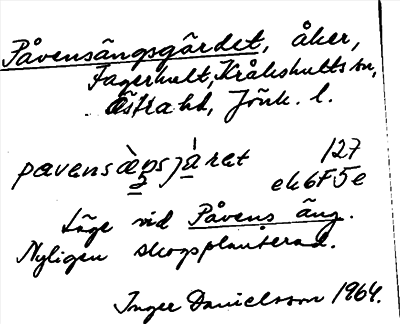 Påvensängsgärdet, åker,
Fagerhult, Kråkshults sn,
Östra hd, Jönk. l.
127
ek6F5e
Läge vid Påvens äng.
Nyligen skogsplanterad.
Inger Danielsson 1964.